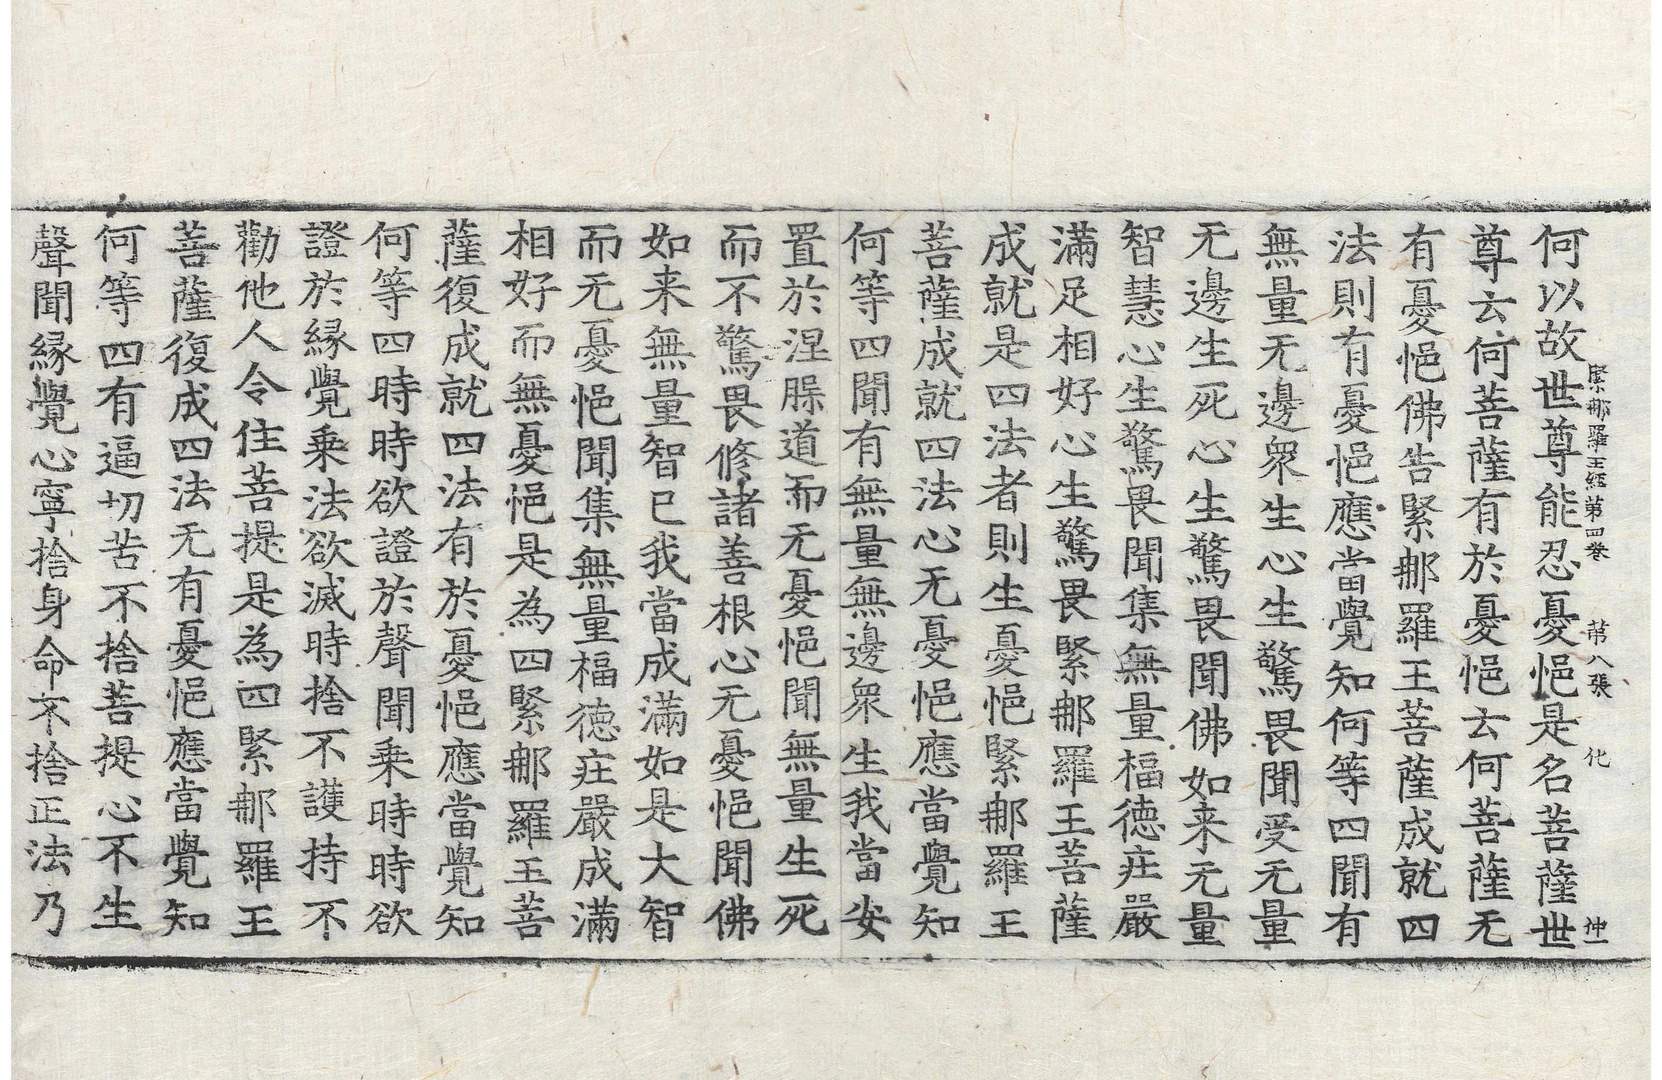 緊那羅王經第四卷　第八張　化　仲一
何以故世尊能忍憂悒是名菩薩世
尊云何菩薩有於憂悒云何菩薩无
有憂悒佛告緊那羅王菩薩成就四
法則有憂悒應當覺知何等四聞有
無量无邊衆生心生驚畏聞受无量
无邊生死心生驚畏聞佛如来无量
智慧心生驚畏聞集無量福德庄嚴
滿足相好心生驚畏緊那羅王菩薩
成就是四法者則生憂悒緊那羅王
菩薩成就四法心无憂悒應當覺知
何等四聞有無量無邊衆生我當安
置於涅槃道而无憂悒聞無量生死
而不驚畏修諸善根心无憂悒聞佛
如来無量智已我當成滿如是大智
而无憂悒聞集無量福德庄嚴成滿
相好而無憂悒是為四緊那羅王菩
薩復成就四法有於憂悒應當覺知
何等四時時欲證於聲聞乗時時欲
證於縁覺乗法欲滅時捨不護持不
勸他人令住菩提是為四緊那羅王
菩薩復成四法无有憂悒應當覺知
何等四有逼切苦不捨菩提心不生
聲聞縁覺心寧捨身命不捨正法乃